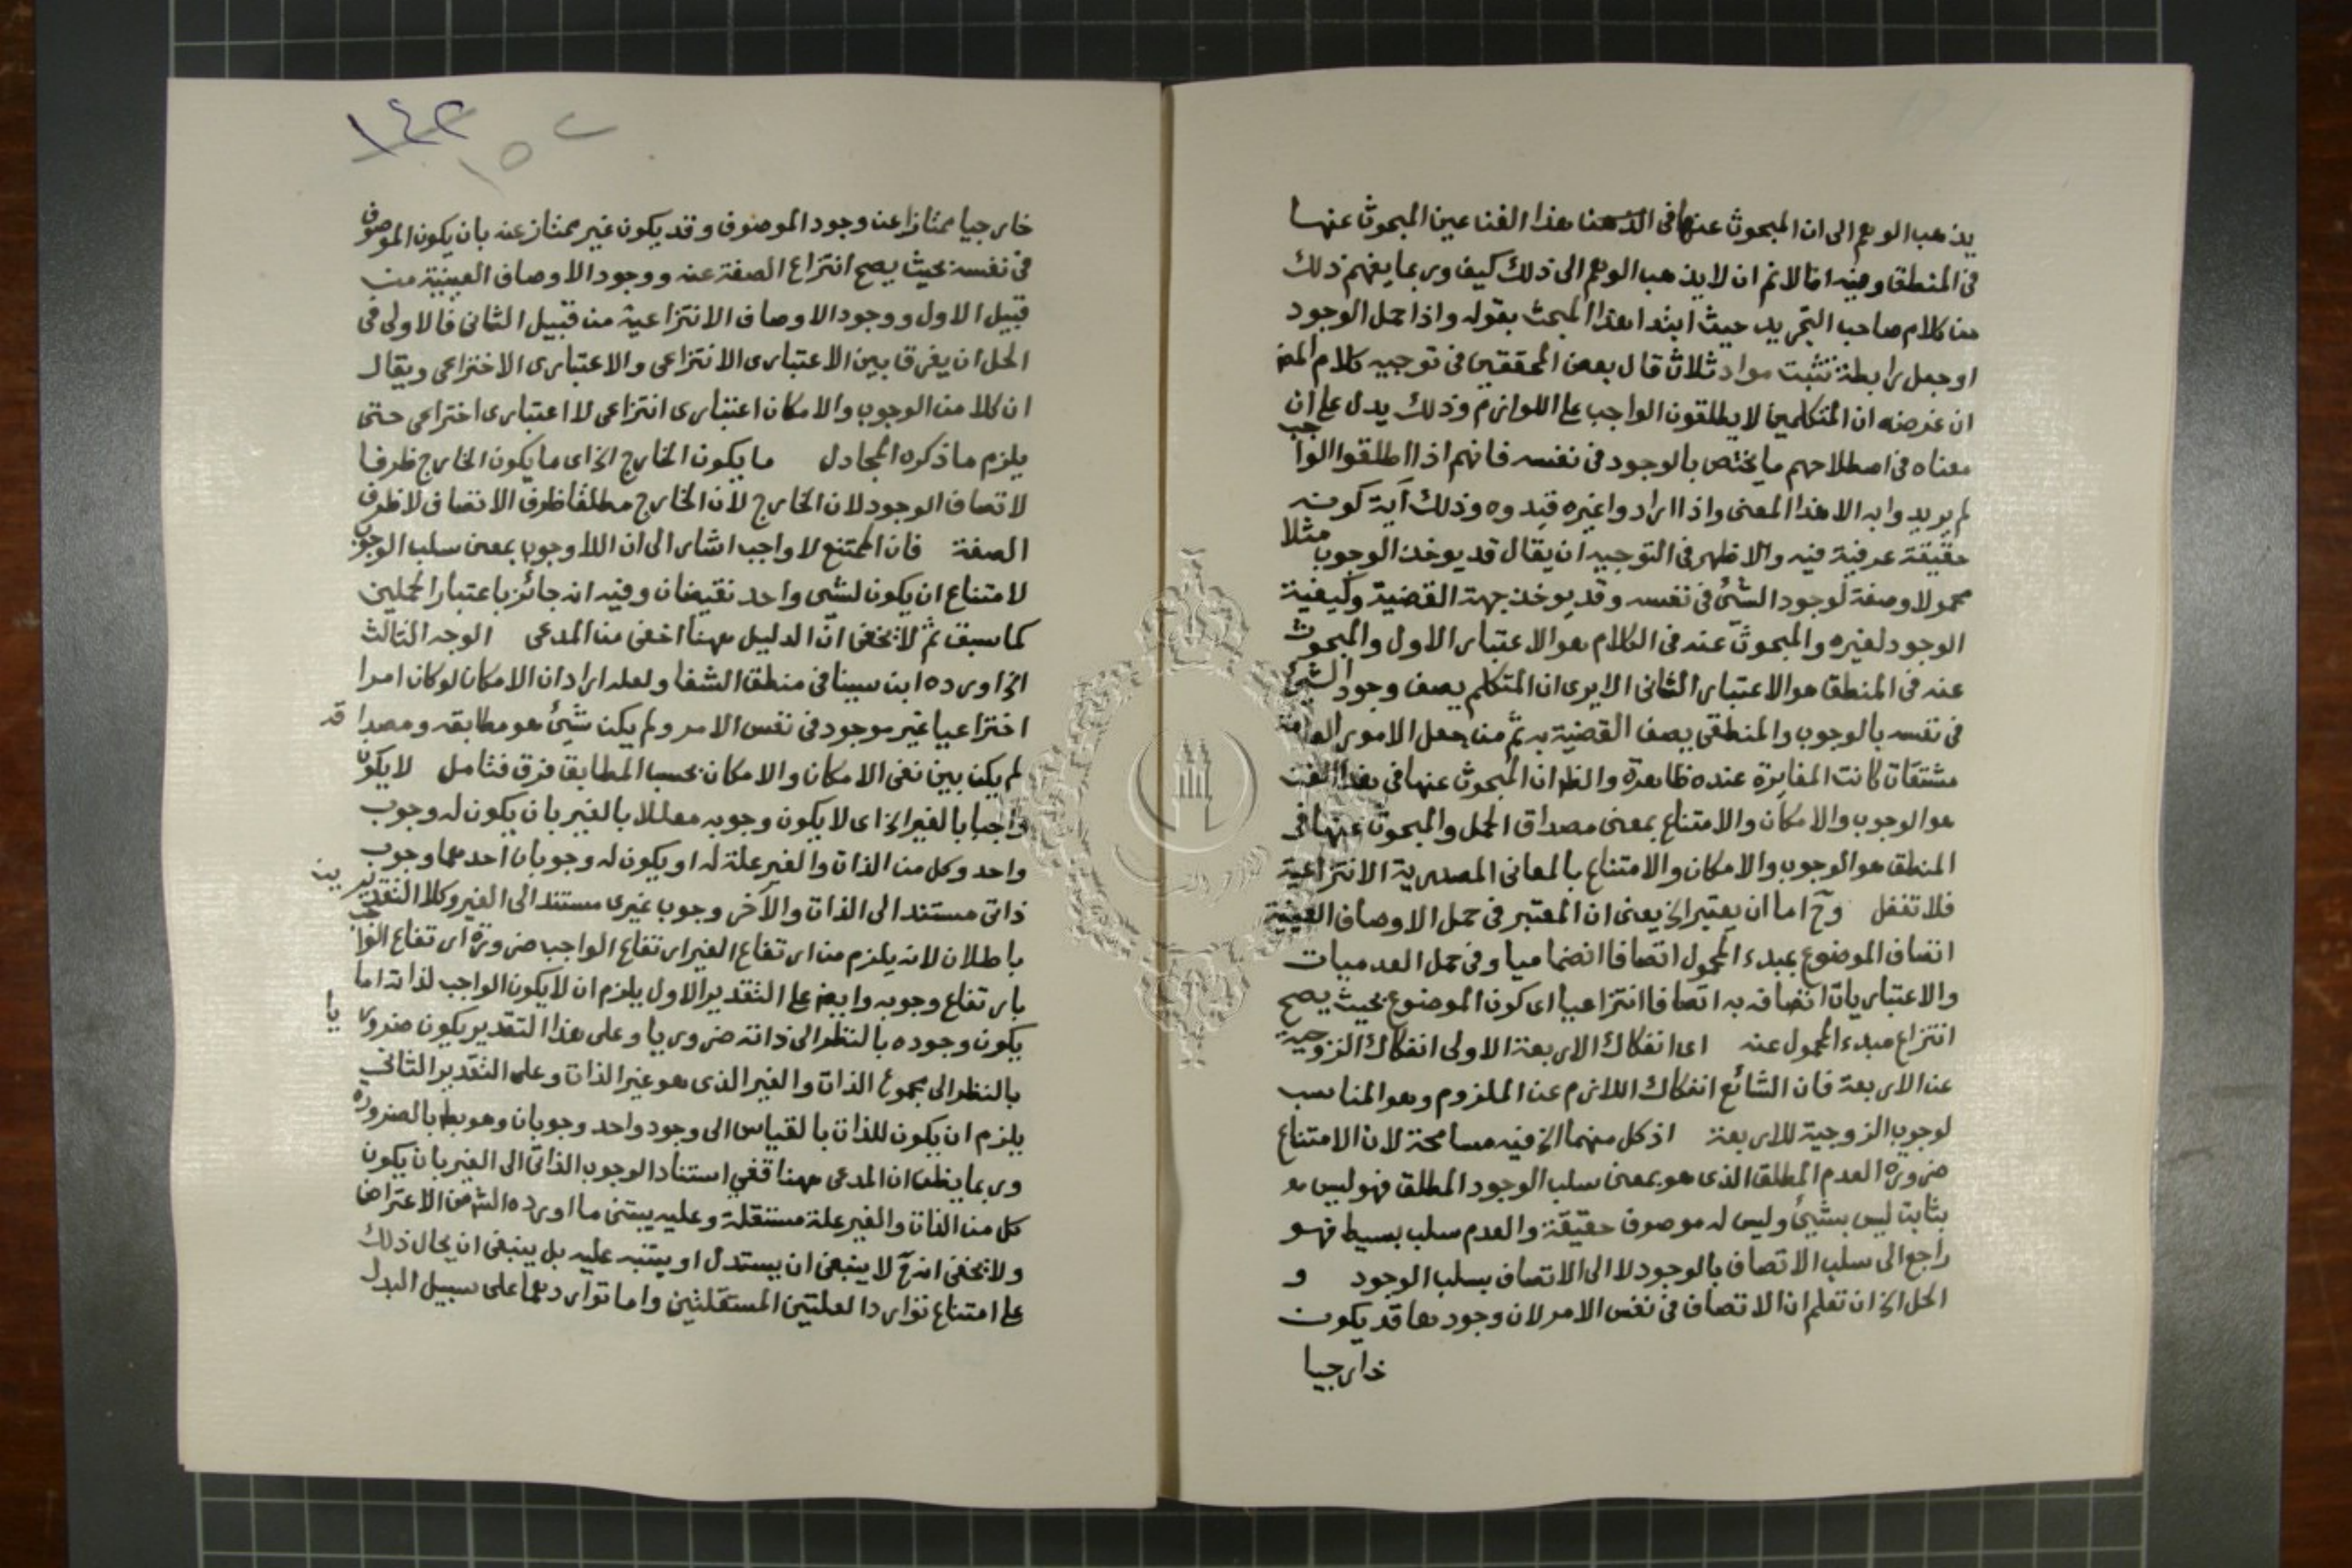 يذهب الوهم الى ان المبحوث عنها فى هذا الفن عين المبحوث عنها
فى المنطق وفيه انا لانم ان لا يذهب الوهم الى ذلك كيف وربما يفهم ذلك
من كلام صاحب التجريد حيث ابتدا هذا المبحث بقوله واذا حمل الوجود
او جعل رابطة تثبت مواد ثلاث قال بعض المحققين فى توجيه كلام المص
ان غرضه ان المتكلمين لا يطلقون الواجب على اللوازم وذلك يدل على ان
معناه فى اصطلاحهم ما يختص بالوجود فى نفسه فانهم اذا اطلقوا الواجب
لم يريدوا به الا هذا المعنى واذا ارادوا غيره قيدوه وذلك آية كونه
حقيقة عرفية فيه والاظهر فى التوجيه ان يقال قد يوخذ الوجوب مثلا
محمولا وصفة لوجود الشئ فى نفسه وقد يوخذ جهة القضية وكيفية
الوجود لغيره والمبحوث عنه فى الكلام هو الاعتبار الاول والمبحوث
عنه فى المنطق هو الاعتبار الثانى الا يرى ان المتكلم يصف وجود الشئ
فى نفسه بالوجوب والمنطقى يصف القضية به ثم من جعل الامور العامة
مشتقات كانت المغايرة عنده ظاهرة والظ ان المبحوث عنها فى هذا الفن
هو الوجوب والامكان والامتناع بمعنى مصداق الحمل والمبحوث عنها فى
المنطق هو الوجوب والامكان والامتناع بالمعانى المصدرية الانتزاعية
فلا تغفل وح اما ان يعتبر الخ يعنى ان المعتبر فى حمل الاوصاف العينية
اتصاف الموضوع بمبدء المحمول اتصافا انضماميا وفى حمل العدميات
والاعتباريات اتصافه به اتصافا انتزاعيا اى كون الموضوع بحيث يصح
انتزاع مبدء المحمول عنه اى انفكاك الاربعة الاولى انفكاك الزوجية
عن الاربعة فان الشائع انفكاك اللازم عن الملزوم وهو المناسب
لوجوب الزوجية للاربعة اذ كل منهما الخ فيه مسامحة لان الامتناع
ضرورة العدم المطلق الذى هو بمعنى سلب الوجود المطلق فهو ليس
بثابت ليس بشئ وليس له موصوف حقيقة والعدم سلب بسيط فهو
راجع الى سلب الاتصاف بالوجود لا الى الاتصاف بسلب الوجود و
الحل الخ ان تعلم ان الاتصاف فى نفس الامر لان وجودها قد يكون
خارجيا
١٤٢
١٥٢
خارجيا ممتازا عن وجود الموصوف وقد يكون غير ممتاز عنه بان يكون الموصوف
فى نفسه بحيث يصح انتزاع الصفة عنه ووجود الاوصاف العينية من
قبيل الاول ووجود الاوصاف الانتزاعية من قبيل الثانى فالاولى فى
الحل ان يفرق بين الاعتبارى الانتزاعى والاعتبارى الاختراعى ويقال
ان كلا من الوجوب والامكان اعتبارى انتزاعى لا اعتبارى اختراعى حتى
يلزم ما ذكره المجادل ما يكون الخارج الخ اى ما يكون الخارج ظرفا
لاتصاف الوجود لان الخارج لان الخارج مطلقا ظرف الاتصاف لا ظرف
الصفة فان الممتنع لا واجب اشار الى ان اللاوجوب بمعنى سلب الوجوب
لامتناع ان يكون لشى واحد نقيضان وفيه انه جائز باعتبار الحملين
كما سبق ثم لا يخفى ان الدليل ههنا اخفى من المدعى الوجه الثالث
الخ اورده ابن سينا فى منطق الشفا ولعله اراد ان الامكان لو كان امرا
اختراعيا غير موجود فى نفس الامر ولم يكن شئ هو مطابقه ومصداقه
لم يكن بين نفى الامكان والامكان بحسب المطابق فرق فتامل لا يكون
واجبا بالغير الخ اى لا يكون وجوبه معللا بالغير بان يكون له وجوب
واحد وكل من الذات والغير علة له او يكون له وجوبان احدهما وجوب
ذاتى مستند الى الذات والآخر وجوب غيرى مستند الى الغير وكلا التقديرين
باطلان لانه يلزم من ارتفاع الغير ارتفاع الواجب ضرورة ارتفاع الواجب
بارتفاع وجوبه وايضا على التقدير الاول يلزم ان لا يكون الواجب لذاته اما
يكون وجوده بالنظر الى ذاته ضروريا وعلى هذا التقدير يكون ضروريا
بالنظر الى مجموع الذات والغير الذى هو غير الذات وعلى التقدير الثانى
يلزم ان يكون للذات بالقياس الى وجود واحد وجوبان وهو بط بالضرورة
وربما يظن ان المدعى ههنا نفى استناد الوجوب الذاتى الى الغير بان يكون
كل من الذات والغير علة مستقلة وعليه يبتنى ما اورده الش من الاعتراض
ولا يخفى انه ح لا ينبغى ان يستدل او يتنبه عليه بل ينبغى ان يحال ذلك
على امتناع توارد العلتين المستقلتين واما تواردهما على سبيل البدل